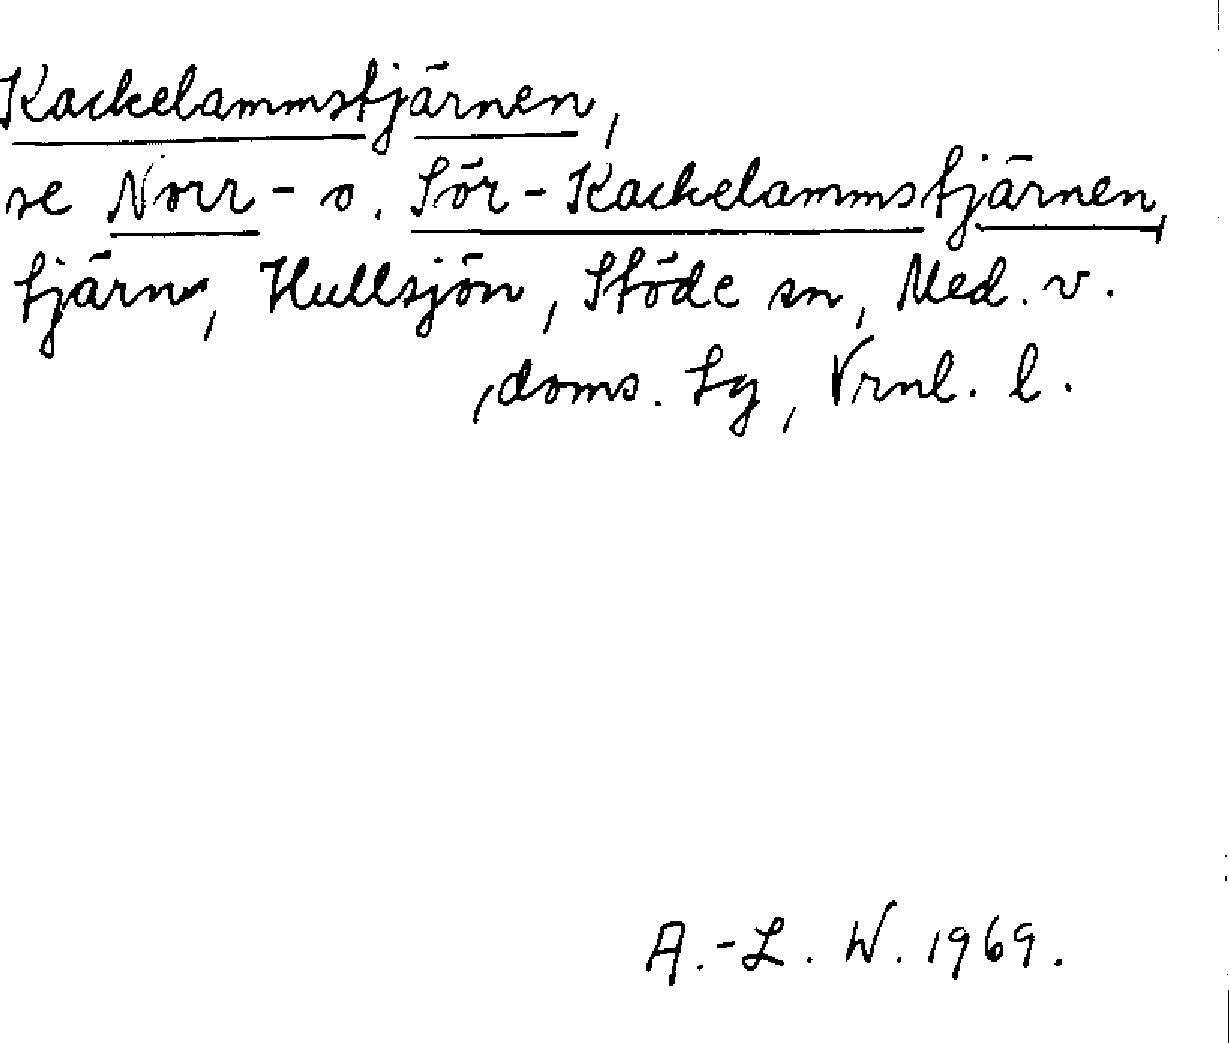 Kackelammstjärnen,
se Norr- o. Sör-Kackelammstjärnen,
tjärnar, Hullsjön, Stöde sn, Med. v.
doms. tg, Vrnl. l.
A.-L. W. 1969.